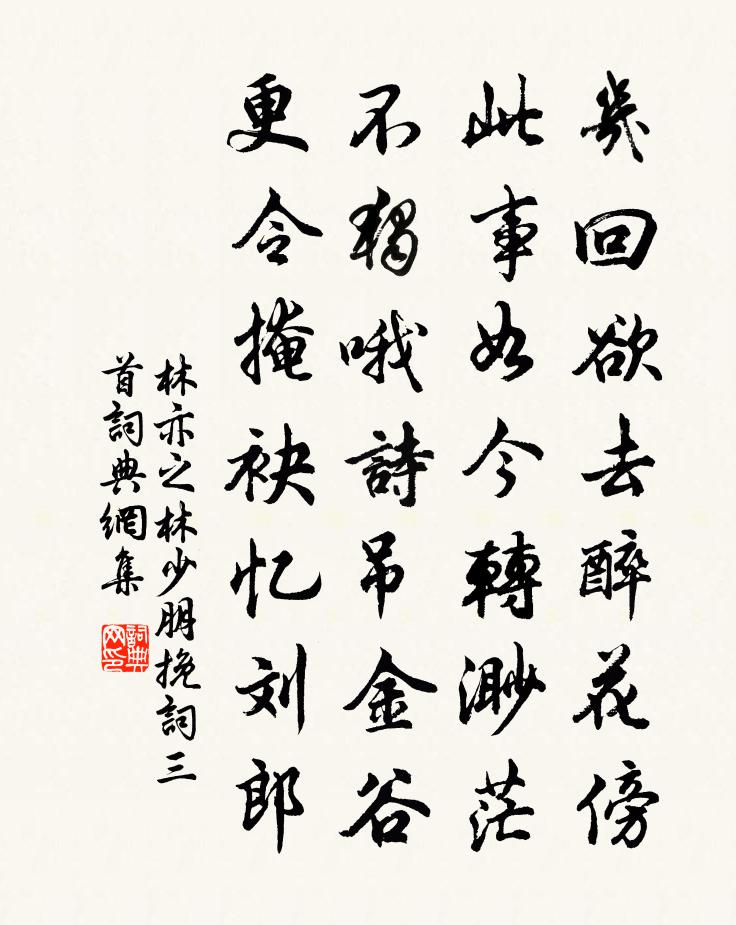 幾回欲去醉花傍
此事如今轉渺茫
不獨哦詩吊金谷
更令掩袂忆刘郎
林亦之林少朋挽詞三
首詞典網集
詞典
网印